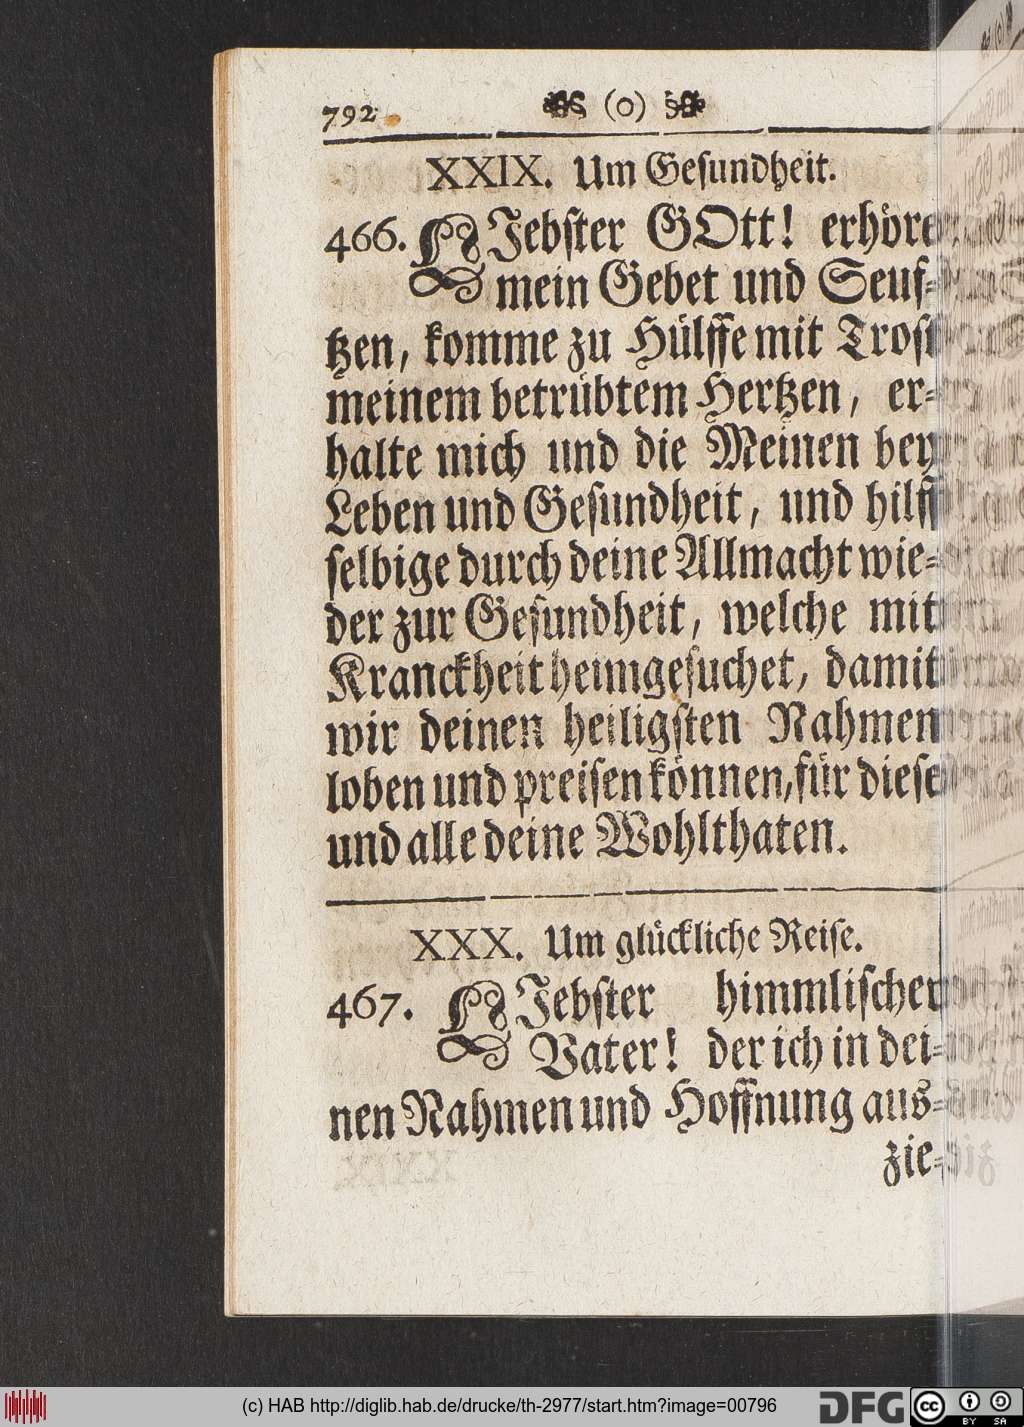 792 (o)
XXIX. Um Gesundheit.
466. LJebster GOtt! erhöre
mein Gebet und Seuf-
tzen, komme zu Hülffe mit Trost
meinem betrübtem Hertzen, er-
halte mich und die Meinen bey
Leben und Gesundheit, und hilff
selbige durch deine Allmacht wie-
der zur Gesundheit, welche mit
Kranckheit heimgesuchet, damit
wir deinen heiligsten Nahmen
loben und preisen können, für diese
und alle deine Wohlthaten.
XXX. Um glückliche Reise.
467. LJebster himmlischer
Vater! der ich in dei-
nen Nahmen und Hoffnung aus-
zie-
(c) HAB http://diglib.hab.de/drucke/th-2977/start.htm?image=00796
DFG
cc BY SA